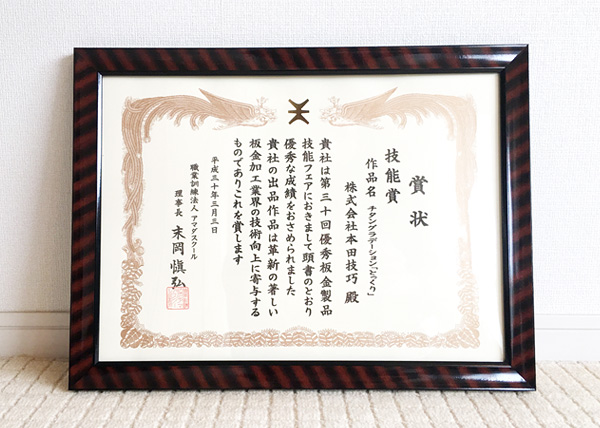 賞状
技能賞
作品名 チタングラデーション「とっくり」
株式会社本田技巧 殿
貴社は第三十回優秀板金製品
技能フェアにおきまして頭書のとおり
優秀な成績をおさめられました
貴社の出品作品は革新の著しい
板金加工業界の技術向上に寄与する
ものでありこれを賞します
平成三十年三月三日
職業訓練法人 アマダスクール
理事長 末岡愼弘